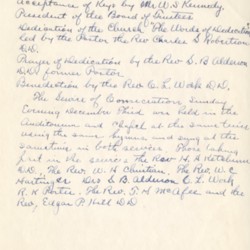 Acceptance of Keys by Mr W D Kennedy
President of the Board of Trustees
Dedication of the Church. The Words of Dedication
Led by the Pastor the Rev Charles S. Robertson
D.D.
Prayer of Dedication by the Rev S. B Alderson
D.D. former Pastor.
Benediction by the Rev. C. L. Work D.D.
The Service of Consecration, Sunday
Evening December Third was held in the
Auditorium and Chapel at the same time
using the same hymns and song at the
same time in both services. Those taking
part in the service The Rev H. A. Ketchum
D.D., The Rev. W. H. Christian. The Rev W. C
Revs S. B. Alderson C. L. Work
R. K. Porter. The Rev. T. H. McAfee and the
Rev, Edgar P. Hill D D